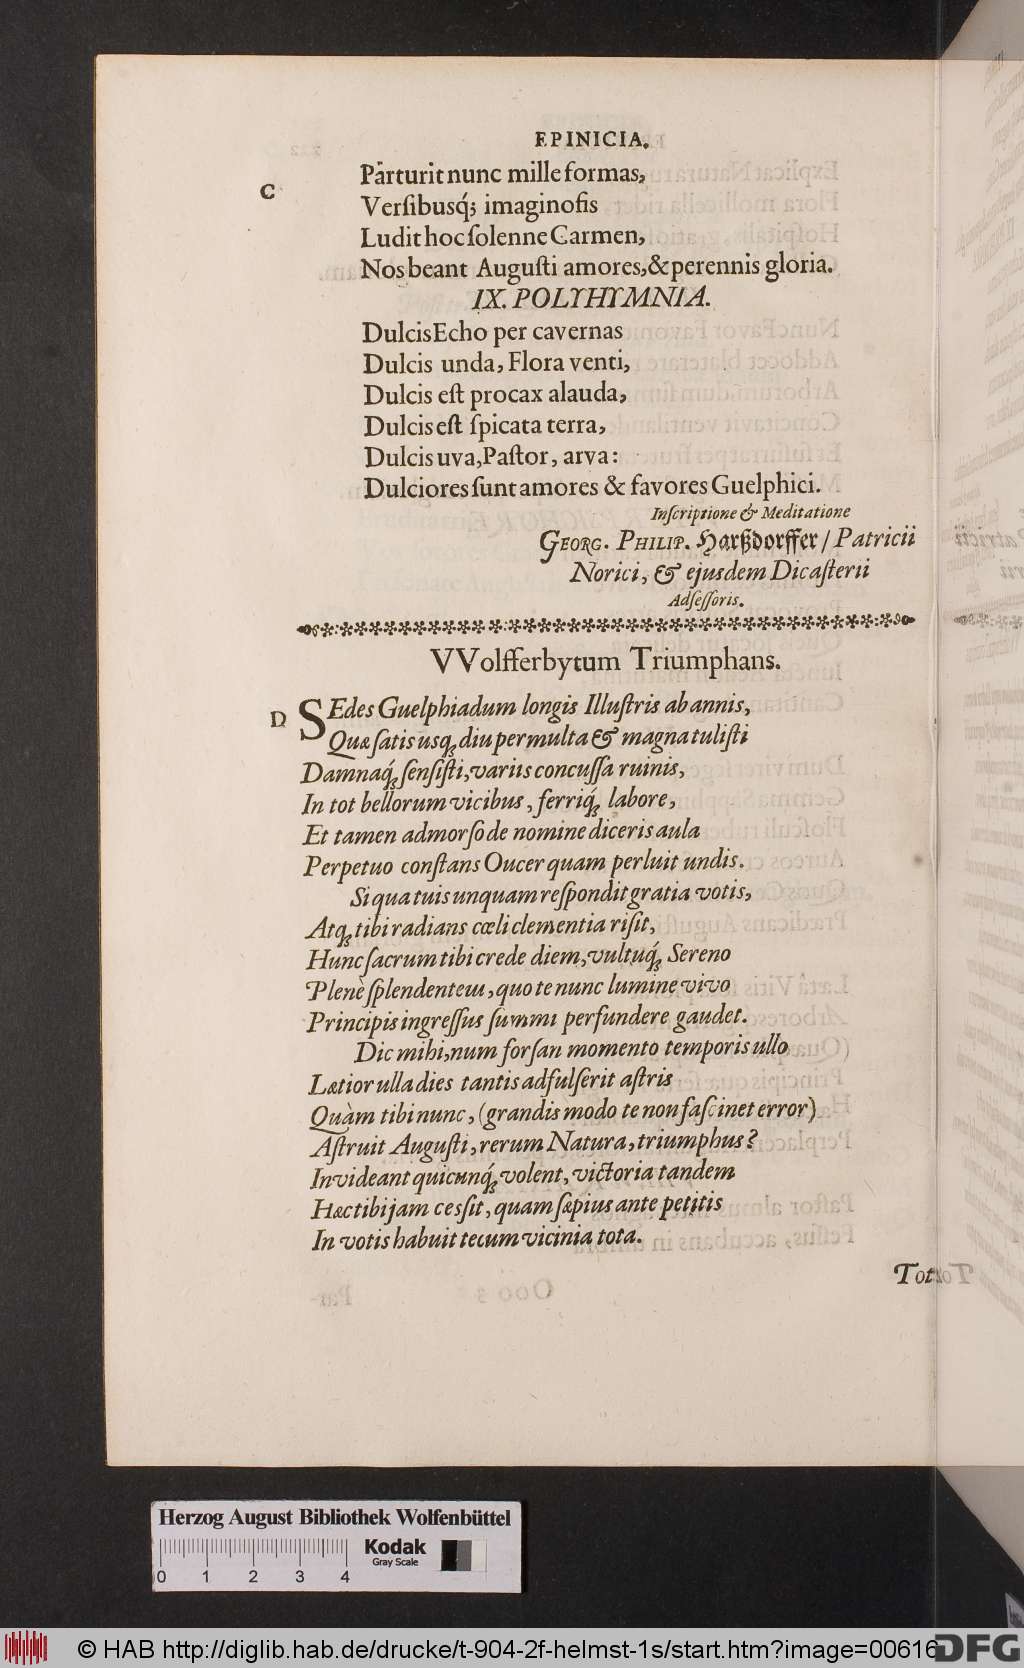 EPINICIA.
C
Parturit nunc mille formas,
Verſibusq́; imaginoſis
Ludit hoc ſolenne Carmen,
Nos beant Auguſti amores, & perennis gloria.
IX. POLYHYMNIA.
Dulcis Echo per cavernas
Dulcis unda, Flora venti,
Dulcis eſt procax alauda,
Dulcis eſt ſpicata terra,
Dulcis uva, Paſtor, arva:
Dulciores ſunt amores & favores Guelphici.
Inſcriptione & Meditatione
GEORG. PHILIP. Harßdorffer / Patricii
Norici, & ejusdem Dicaſterii
Adſeſſoris.
VVolfferbytum Triumphans.
D
SEdes Guelphiadum longis Illuſtris ab annis,
Quæ ſatis usq; diu per multa & magna tuliſti
Damnaq́; ſenſiſti, variis concuſſa ruinis,
In tot bellorum vicibus, ferriq́; labore,
Et tamen admorſo de nomine diceris aula
Perpetuo conſtans Oucer quam perluit undis.
Si qua tuis unquam reſpondit gratia votis,
Atq; tibi radians cœli clementia riſit,
Hunc ſacrum tibi crede diem, vultuq́; Sereno
Plenè ſplendentem, quo te nunc lumine vivo
Principis ingreſſus ſummi perfundere gaudet.
Dic mihi, num forſan momento temporis ullo
Lætior ulla dies tantis adfulſerit aſtris
Quàm tibi nunc, (grandis modo te non faſcinet error)
Aſtruit Auguſti, rerum Natura, triumphus?
Invideant quicunq́; volent, victoria tandem
Hæc tibi jam cessit, quam ſæpius ante petitis
In votis habuit tecum vicinia tota.
Tot
Herzog August Bibliothek Wolfenbüttel
Kodak
Gray Scale
0 1 2 3 4
© HAB http://diglib.hab.de/drucke/t-904-2f-helmst-1s/start.htm?image=00616
DFG